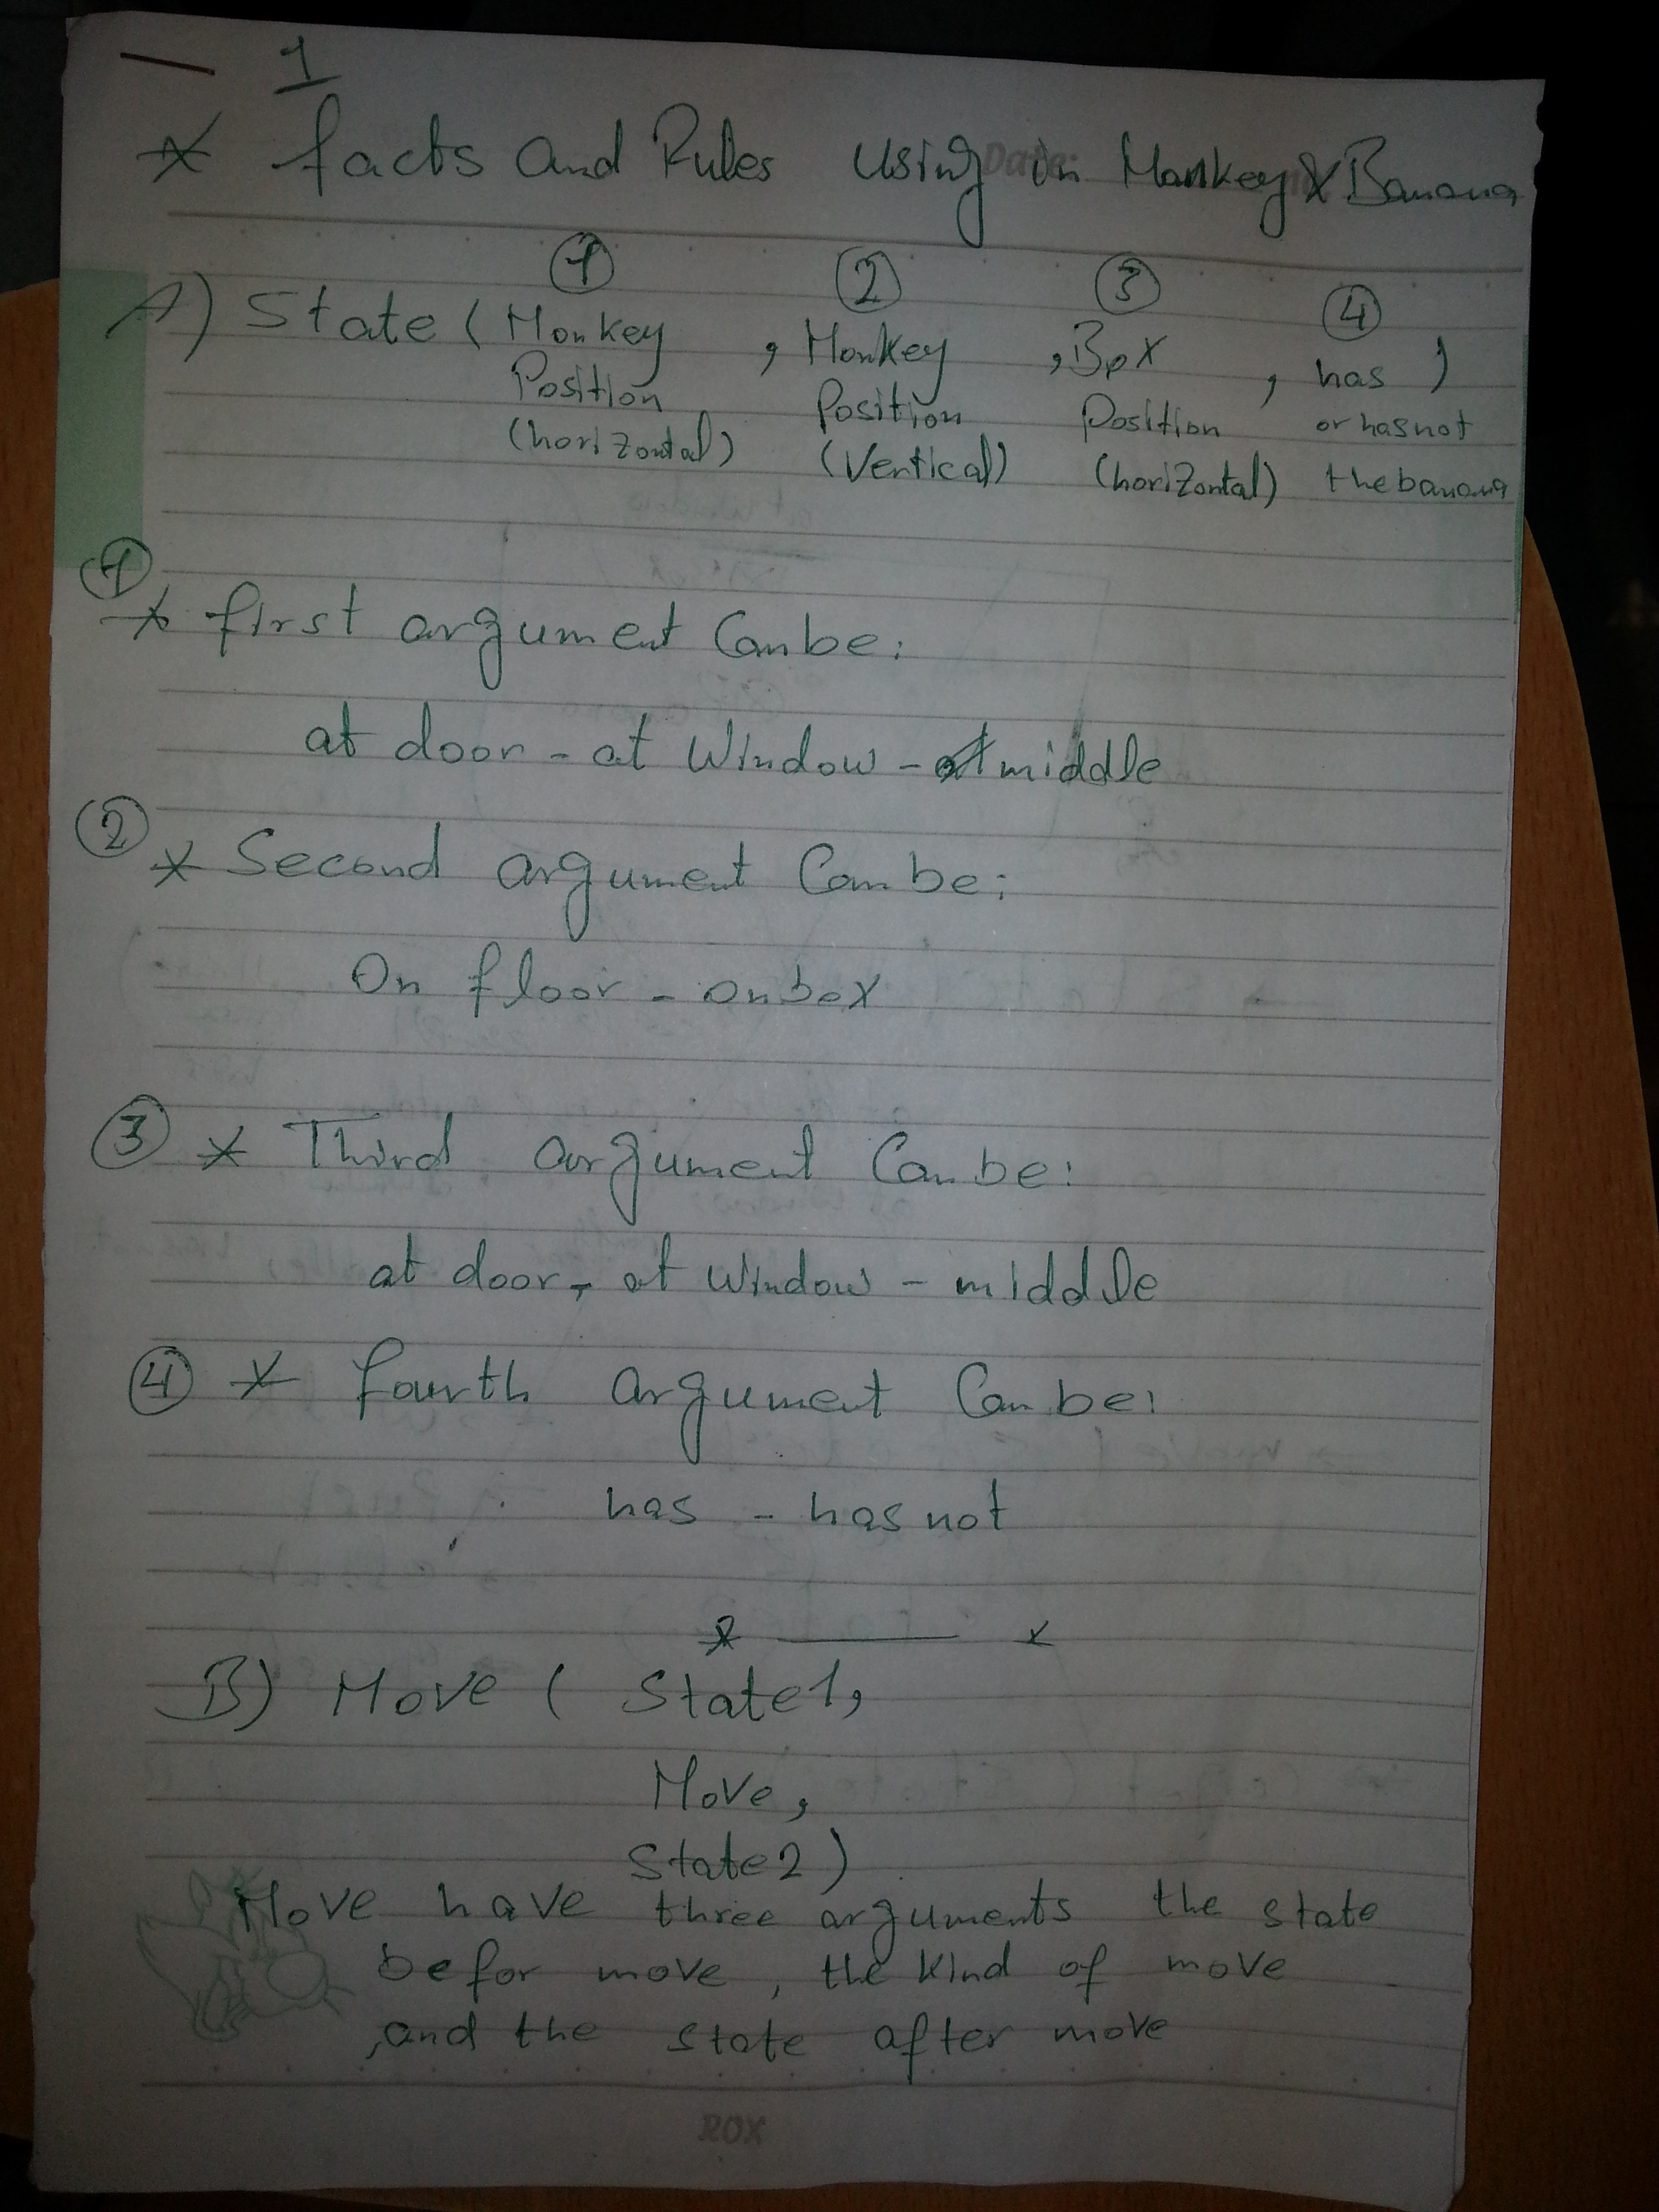 1
* facts and Rules using in Monkey & Banana
Date:
① ② ③ ④
A) State ( Monkey , Monkey , Box , has )
Position Position Position or has not
(horizontal) (Vertical) (horizontal) the banana
①
* first argument Can be:
at door - at Window - at middle
②
* Second argument Can be:
On floor - on box
③ * Third argument Can be:
at door - at window - middle
④ * fourth argument Can be:
has - has not
B) Move ( State1,
Move,
State2)
Move have three arguments the state
befor move , the kind of move
,and the state after move
ROX